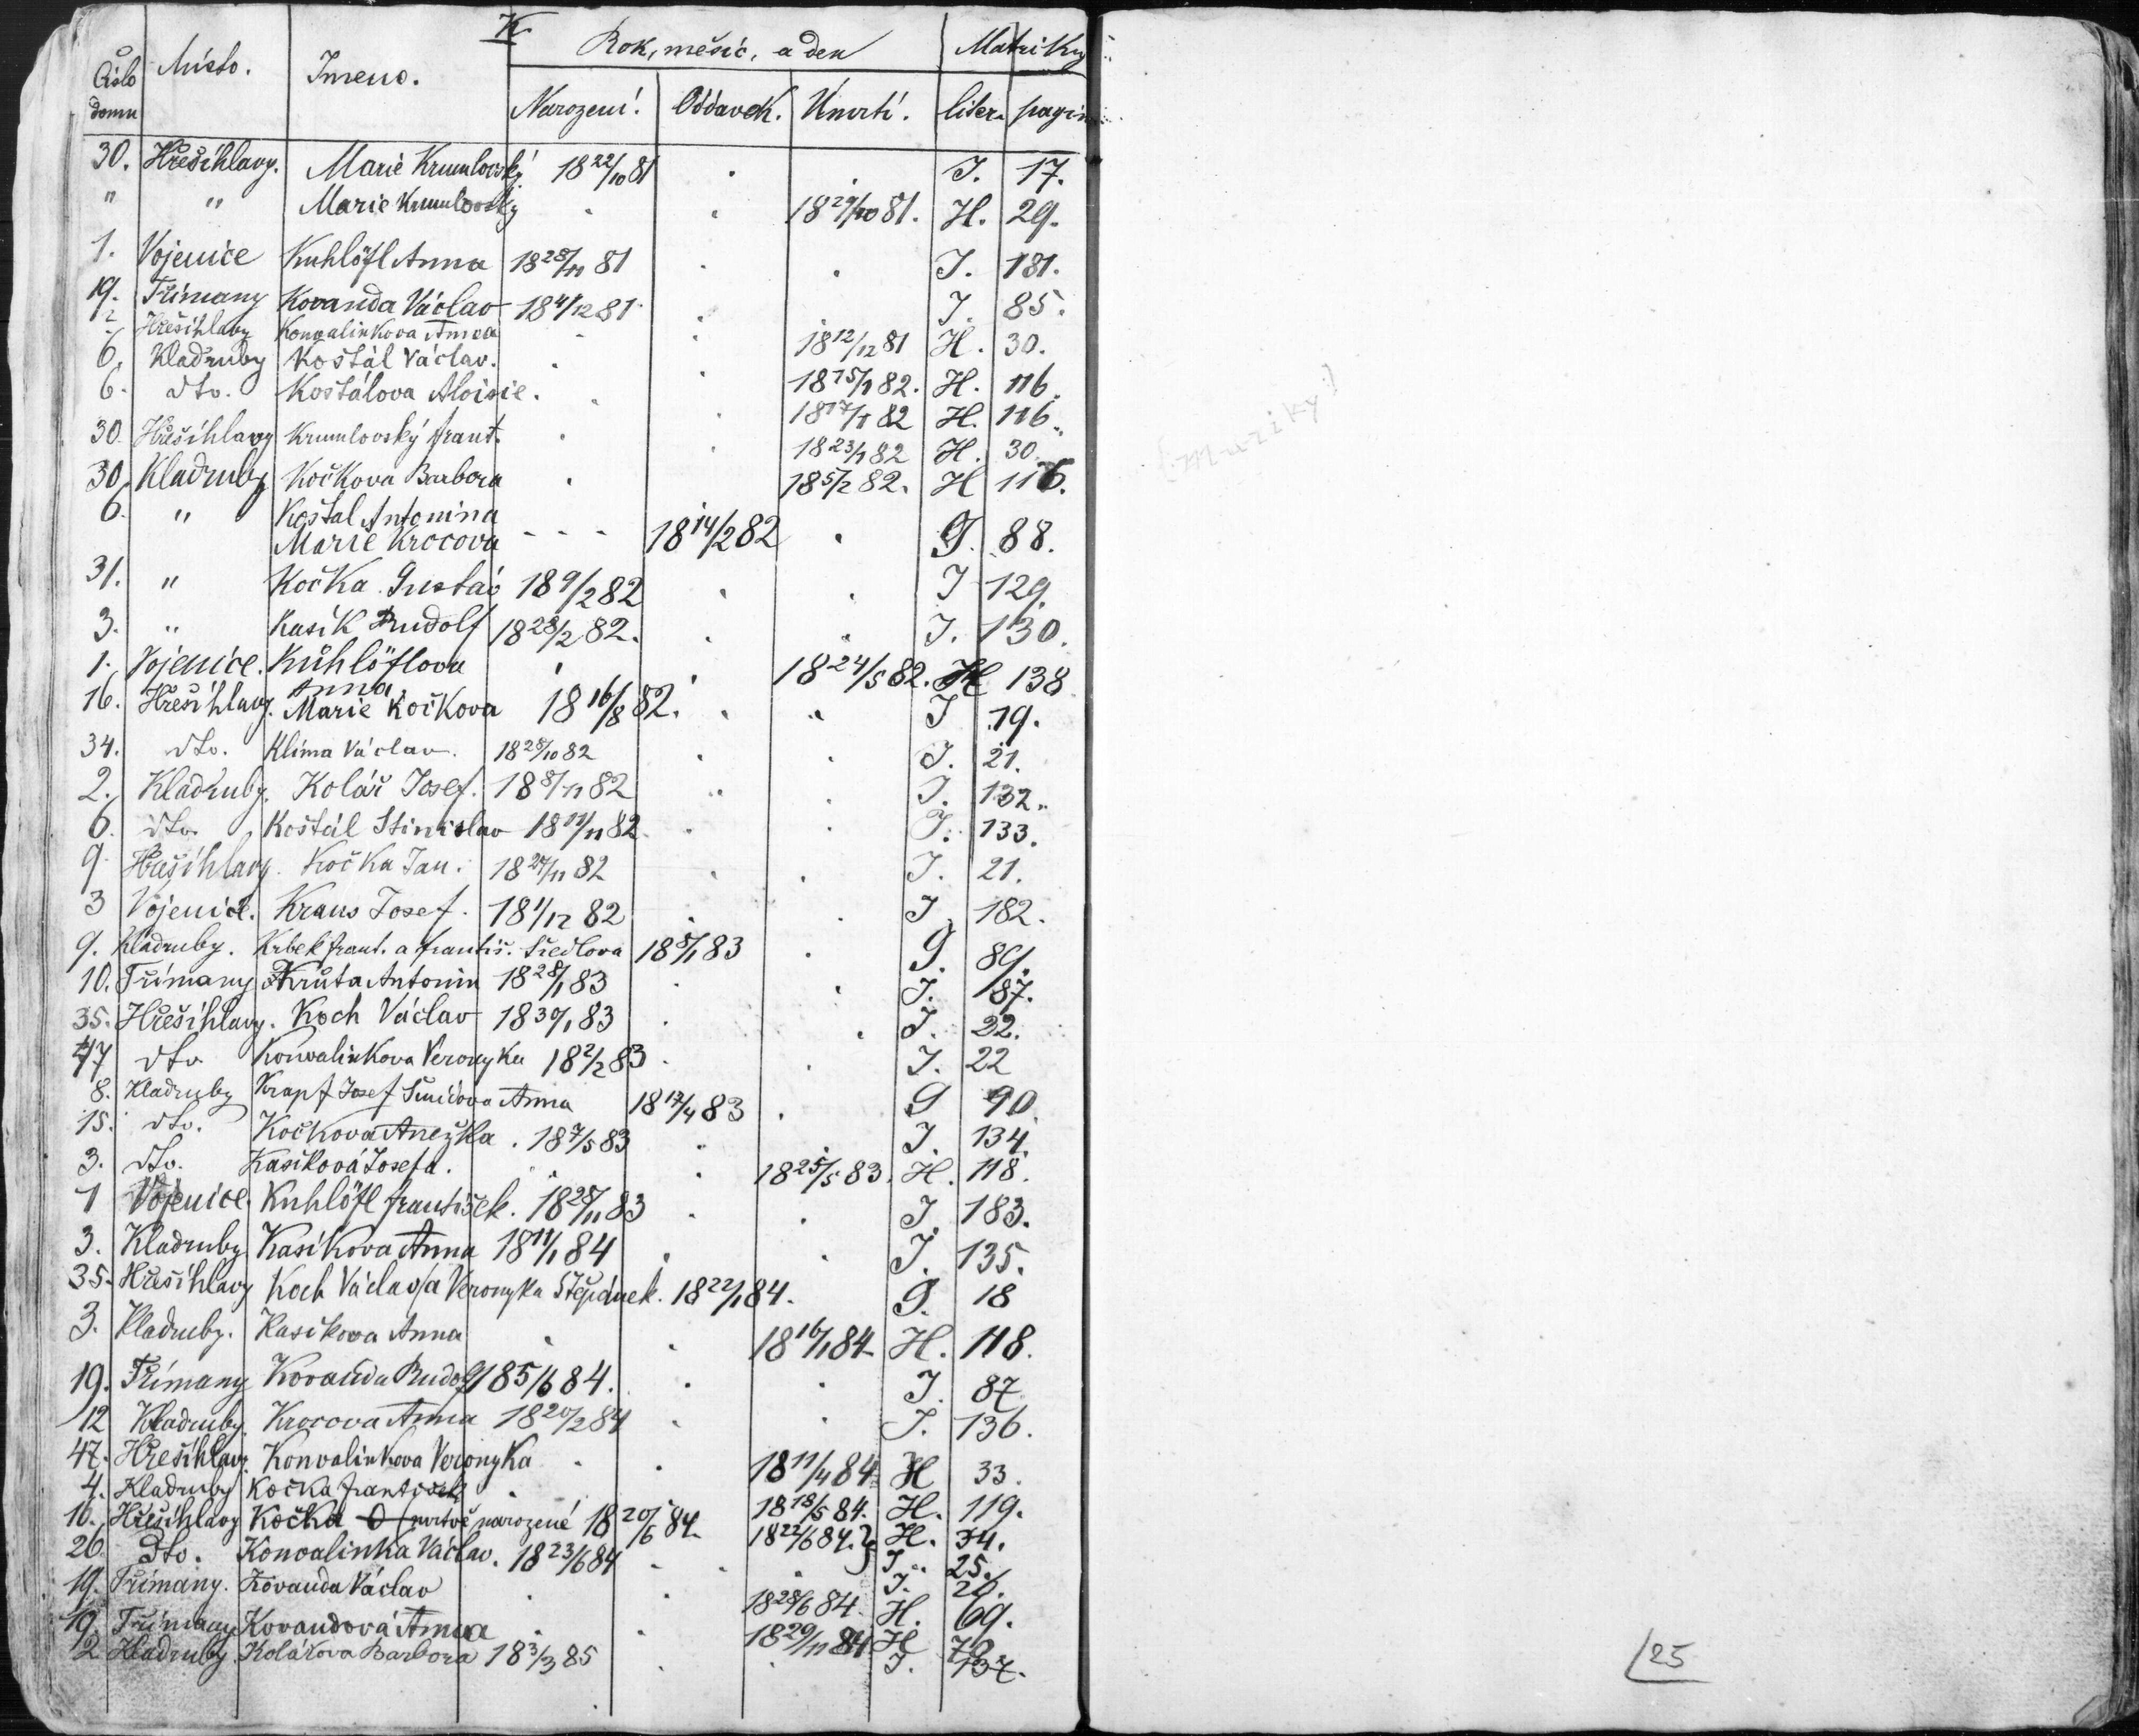 K.
Číslo domu Místo. Jmeno. Rok, měsíc, a den Matriky
Narození. Oddavek. Úmrtí. liter. pagin
30. Hřešihlavy. Marie Krumlovský 18 22/10 81 . . J. 17.
" " Marie Krumlovský . . 18 29/10 81. H. 29.
1. Vojenice Kuhlöfl Anna 18 28/11 81 . . J. 181.
19. Třímany Kovanda Václav 18 4/12 81 . . J. 85.
Hřešihlavy Konvalinkova Anna . . 18 12/12 81 H. 30.
6. Kladruby Košťál Václav. . . 18 15/1 82. H. 116.
6. dto. Košťálova Aloisie. . . 18 17/1 82 H. 116.
30. Hřešihlavy Krumlovský frant. . . 18 23/1 82 H. 30.
30. Kladruby Kočkova Barbora . . 18 5/2 82. H 116.
6. " Košťal Antonina
Marie Krocova - - - 18 14/2 82 . G. 88.
31. " Kočka Gustav 18 9/2 82 . . J 129.
3. " Kasík Rudolf 18 28/2 82. . . J. 130.
1. Vojenice. Kůhlöflova . . 18 24/5 82. H 138
Anna
16. Hřešihlavy. Marie Kočkova 18 16/8 82. . . J 19.
34. dto. Klima Václav. 18 28/10 82 . . J. 21.
2. Kladruby. Kolář Josef. 18 8/11 82 . . J. 132.
6. dto. Košťál Stinislav 18 11/11 82. . . J. 133.
9. Hřešihlavy. Kočka Jan. 18 27/11 82 . . J. 21.
3 Vojenice. Kraus Josef. 18 1/12 82 . . J 182.
9. Kladruby. Krbek frant. a františ. Šiedlova 18 8/1 83 . G. 89.
10. Třímany Krůta Antonin 18 28/1 83 . . J. 87.
35. Hřešihlavy. Koch Václav 18 30/1 83 . . J. 22.
47 dto Konvalinkova Veronyka 18 2/2 83 . . J. 22
8. Kladruby Krapf Josef Šmidova Anna 18 17/4 83 . G 90.
15. dto. Kočkova Anežka. 18 7/5 83 . . J. 134.
3. dto. Kasíková Josefa. . . 18 25/5 83. H. 118.
1 Vojenice. Kuhlöfl františek. 18 28/11 83 . . J. 183.
3. Kladruby Kasíkova Anna 18 11/1 84 . . J. 135.
35. Hřešihlavy Koch Václav a Veronyka Štěpánek. 18 22/1 84. G. 18
3. Kladruby. Kasíkova Anna . . 18 16/1 84 H. 118.
19. Třímany Kovanda Rudolf 18 5/1 84. . . J. 87
12 Kladruby. Krocova Anna 18 20/2 84 . . J. 136.
47. Hřešihlavy Konvalinkova Veronyka . . 18 11/4 84 H 33.
4. Kladruby Kočka františek . 18 18/5 84. H. 119.
16. Hřešihlavy Kočka O mrtvě narozené 18 20/6 84. 18 22/6 84. H. 34.
J. 25.
26. dto. Konvalinka Václav. 18 23/6 84 . . J. 26.
19. Třímany. Kovanda Václav . . 18 28/6 84. H. 69.
19. Třímany Kovandová Anna . . 18 29/11 84. H 70
2 Kladruby. Kolářova Barbora 18 3/3 85 . . J. 137.
25